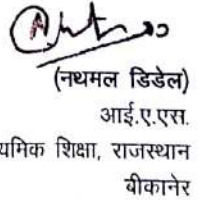 (नथमल डिडेल)
आई.ए.एस.
यमिक शिक्षा, राजस्थान
बीकानेर